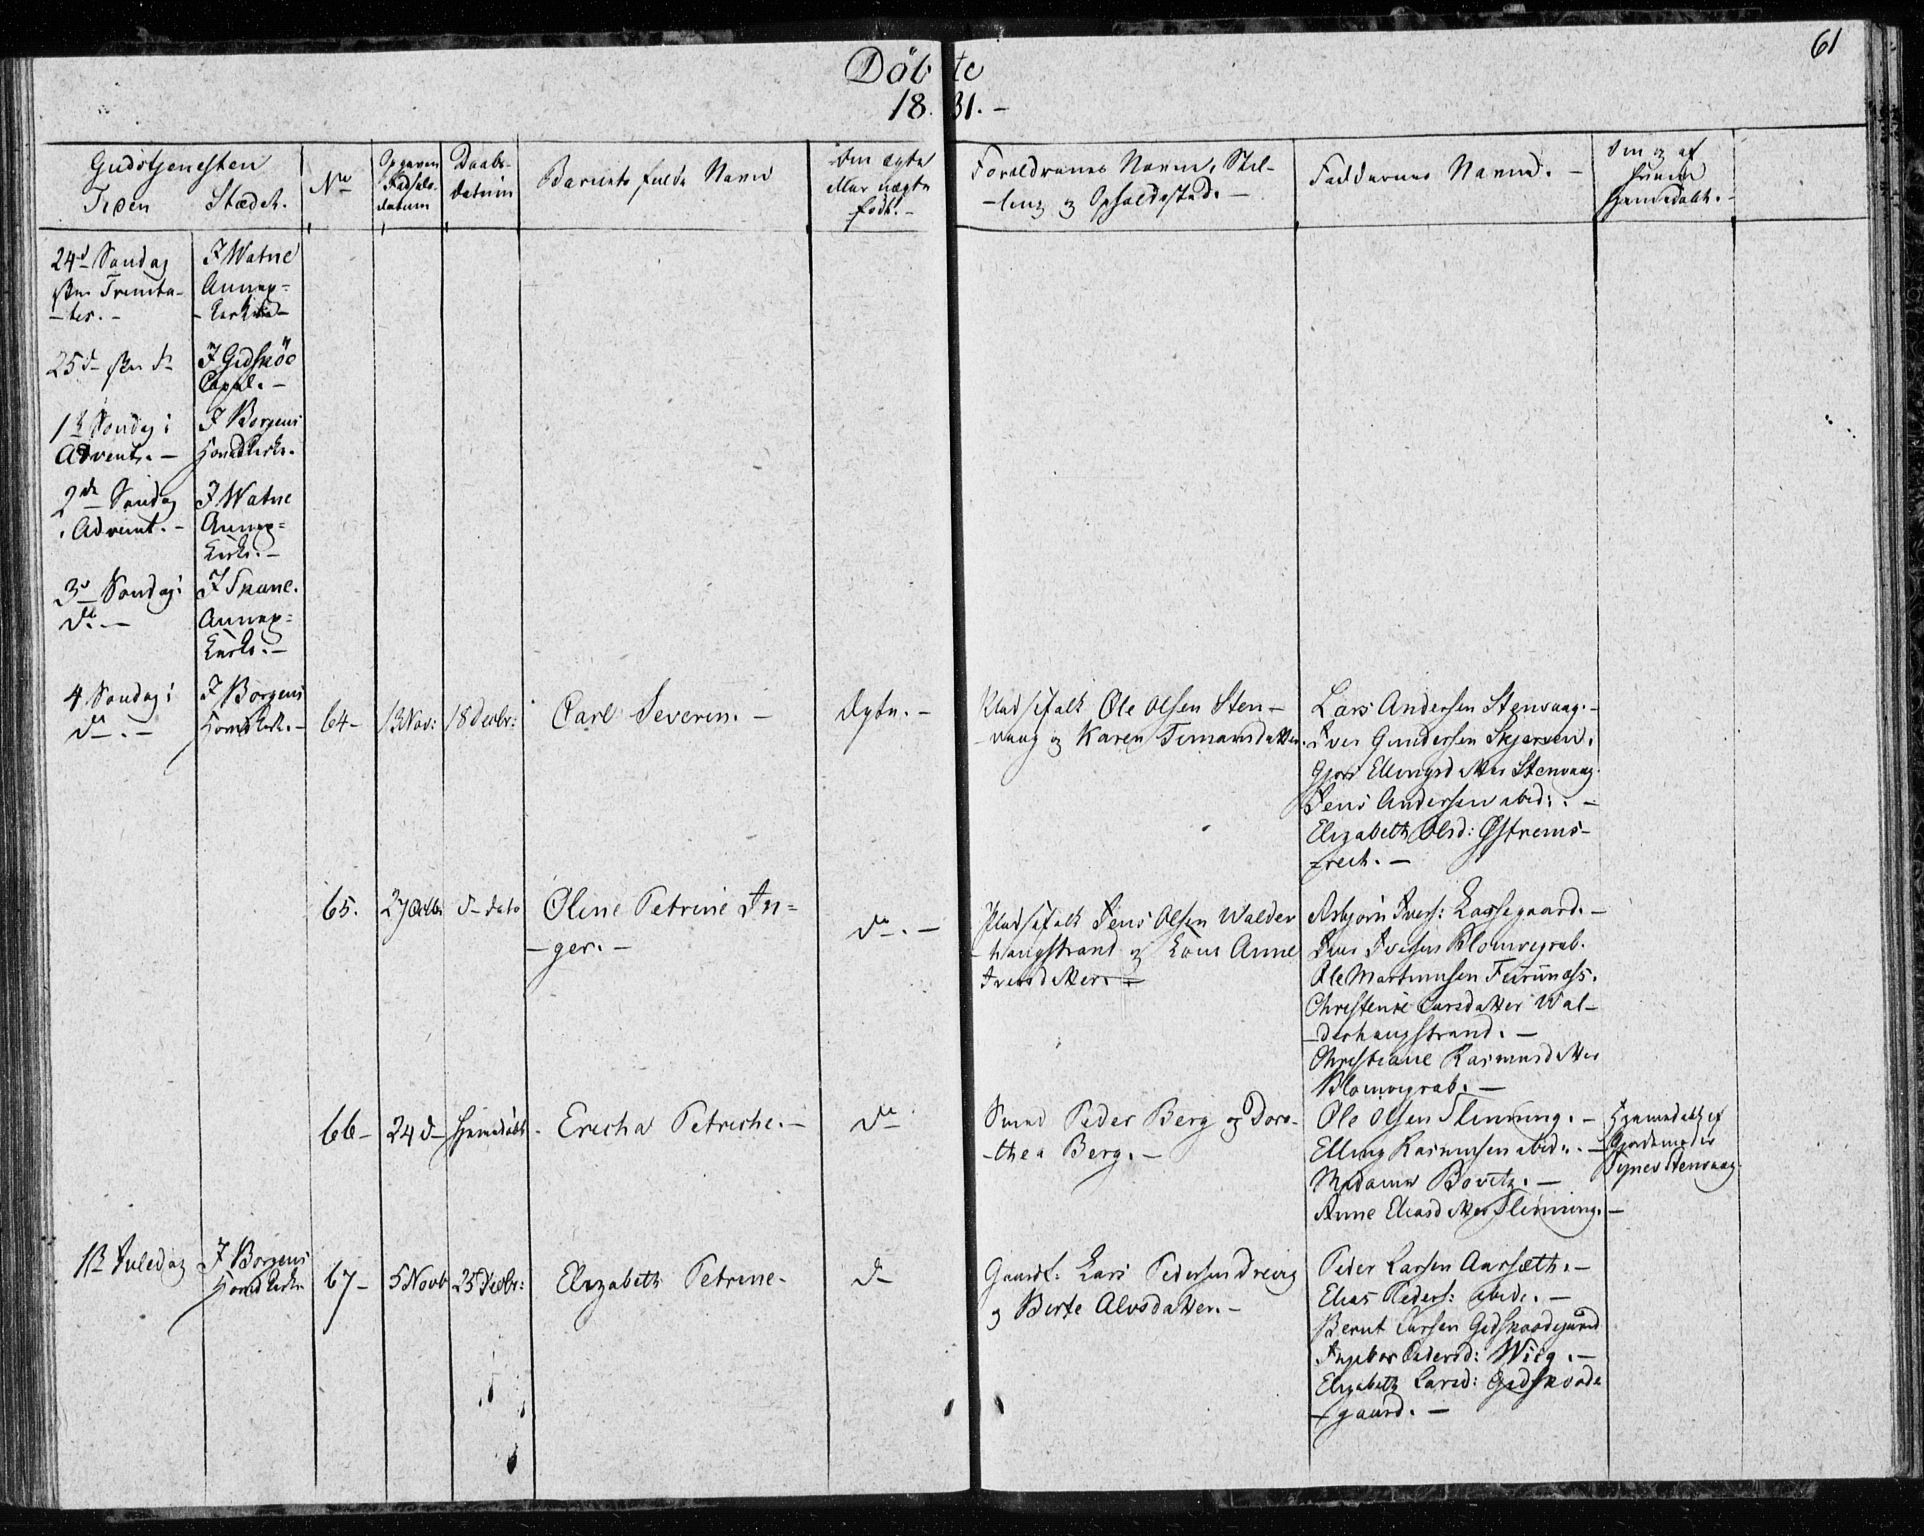 61
Döbte
1831. -
Gudstjenesten
Tiden Stædet.
No
Opgiven
Fødsels-
datum
Daabs-
datum
Barnets fulde Navn
Om ægte
eller uægte
født. -
Forældrenes Navne, Stil-
-ling og Opholdssted. -
Faddernes Navne. -
Om og af
hvem
hjemmedøbt. -
24de Søndag
efter Trinita-
-tes. -
I Watne
Annex-
-kirke
25d- efter do
I Gidskøe
Capel. -
1te Søndag i
Advent. -
I Borgens
Hovedkirke.
2de Søndag
i Advent. -
I Watne
Annex-
kirke. -
3de Søndag i
do. -
I Skane.
Annex-
kirke. -
4 Søndag i
do. -
I Borgens
Hovedkirke. -
64-
13 Nov:
18 Decbr:
Carl Severin. -
Ægte. -
Pladsefolk Ole Olsen Sten-
-vaag og Karen Timansdatter.
Lars Andersen Stenvaag. -
Iver Gundersen Skjersen.
Gjøri Ellingsdatter Stenvaag.
Jens Andersen ibid: . -
Elizabeth Olsd: Østrems-
-
65.
27 Octb
d- dato
Oline Petrine In-
-ger. -
do. -
Pladsefolk Jens Olsen Walder
-haugstrand og Lone Anne
Iversdatter. -
Asbjørn Ivers: Lassegaard. -
Jens Iversen Blomvegrab.
Ole Martinusen
Christense Larsdatter Wal-
-derhaugstrand. -
Christiane Rasmusdatter
Blomvegrab. -
66-
24 d-
Hjemmedøbt.
Ericha Petriche. -
do
Smed Peder Berg og Doro-
-thea Berg. -
Ole Olsen Slinning. -
Elling Rasmusen ibid. -
Madame Bovitz. -
Anne Eliasdatter Slinning. -
Hjemmedøbt af
Gjordemoder
Stenvaag.
1te Juledag
I Borgens
Hovedkirke
67-
5 Novb
25 Decbr:
Elizabeth Petrine-
d-
Gaardf. Lars Pedersen Drevig
og Berte Alvsdatter. -
Peder Larsen Aarsæth. -
Elias Peders: ibid. -
Bernt Larsen Gidskoodegaard
Ingebor Pedersd: Wiig. -
Elizabeth Larsd: Gidskoode
-gaard. -